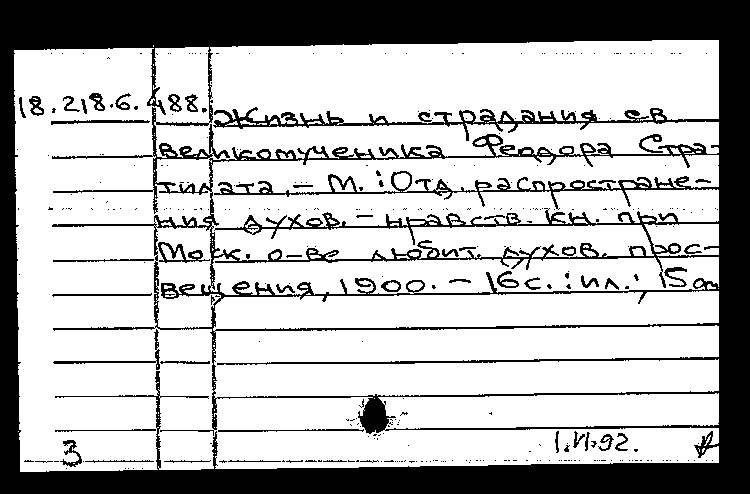 18.218.6.488.
Жизнь и страдания св
великомученика Феодора Стра-
тилата. – М. : Отд. распростране-
ния духов. – нравств. кн. при
Моск. о-ве любит. духов. прос-
вещения, 1900. – 16 с. : ил. ; 15 см
3
1.VI.92.